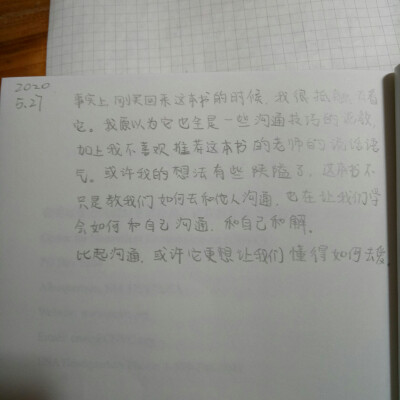 2020
5.27
事实上刚买回来这本书的时候,我很抵触看
它。我原以为它也全是一些沟通技法的说教,
加上我不喜欢推荐这本书的老师的说话语
气。或许我的想法有些狭隘了,这本书不
只是教我们如何去和他人沟通,也在让我们学
会如何和自己沟通,和自己和解。
比起沟通,或许它更想让我们懂得如何去爱